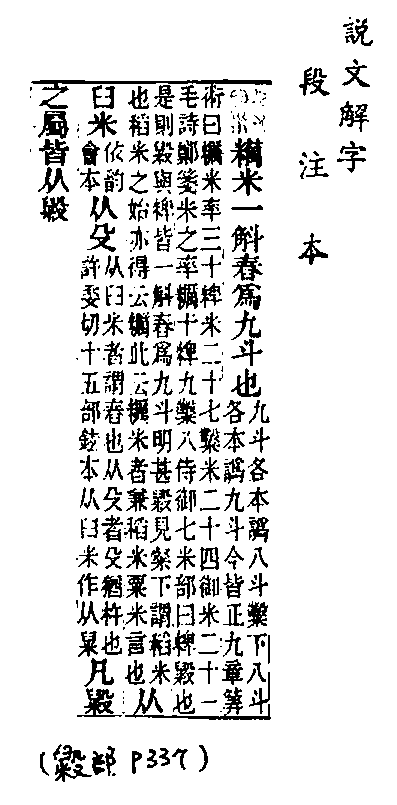 說文解字
段注本
糲米一斛舂爲九斗也
九斗各本譌八斗糳下八斗
各本譌九斗今皆正九章筭
術曰糲米率三十粺米二十七糳米二十四御米二十一
毛詩鄭箋米之率糲十粺九糳八侍御七米部曰粺毇也
是則毇與粺皆一斛舂爲九斗明甚毇見粲下謂稻米
也稻米之始亦得云糲此云糲米者兼稻米粟米言也
从
臼米
依韵
會本
从殳
从臼米者謂舂也从殳者殳猶杵也
許委切十五部鉉本从臼米作从
凡毇
之屬皆从毇
(毇部 P337)